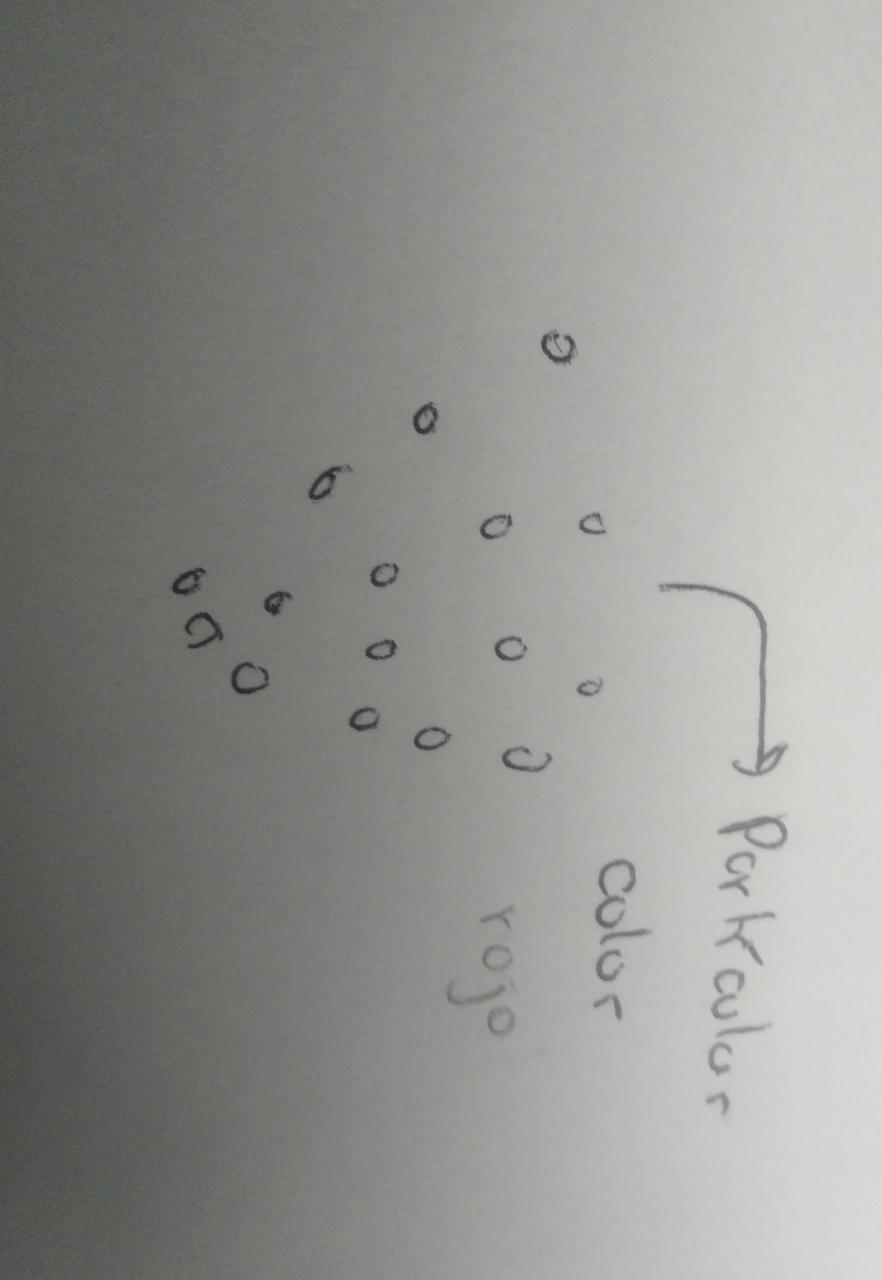 Particular
color
rojo